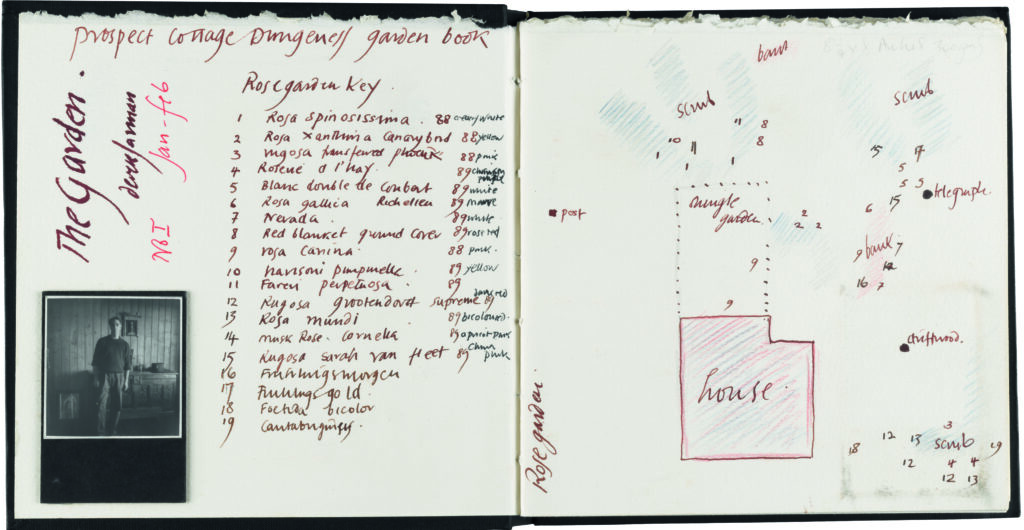 Prospect Cottage Dungeness garden book
The Garden.
derek Jarman
NB I Jan-Feb
Rose garden Key.
1 Rosa spinosissima. 88 creamy white
2 Rosa Xanthina Canary bird 88 yellow
3 rugosa 88 pink
4 Roserie d l'hay. 89
5 Blanc double de Coubart 89 white
6 Rosa gallica Richelieu 89 mauve
7 Nevada. 89 white
8 Red blanket ground cover 89 rose red
9 rosa Carina. 88 pink.
10 harisoni 89 yellow
11 Fareri perpetuosa. 89
12 Rugosa grootendorst supreme 89
13 Rosa mundi 89 bicoloured.
14 musk Rose. Cornelia 89 apricot pink
15 Rugosa sarah van fleet 89 China pink
16 Fruhlingsmorgen
17 Fruhlingsgold.
18 Foetida bicolor
19
bank
scrub
scrub
10 11 11 8
1 1 8
15 17
5
5 3
telegraph.
post
jungle garden.
2
2 2
6 15
9 bank 7
12
16 7
9
9
driftwood.
house.
Rose garden.
3
18 12 13 scrub 19
12 4 4
12 13